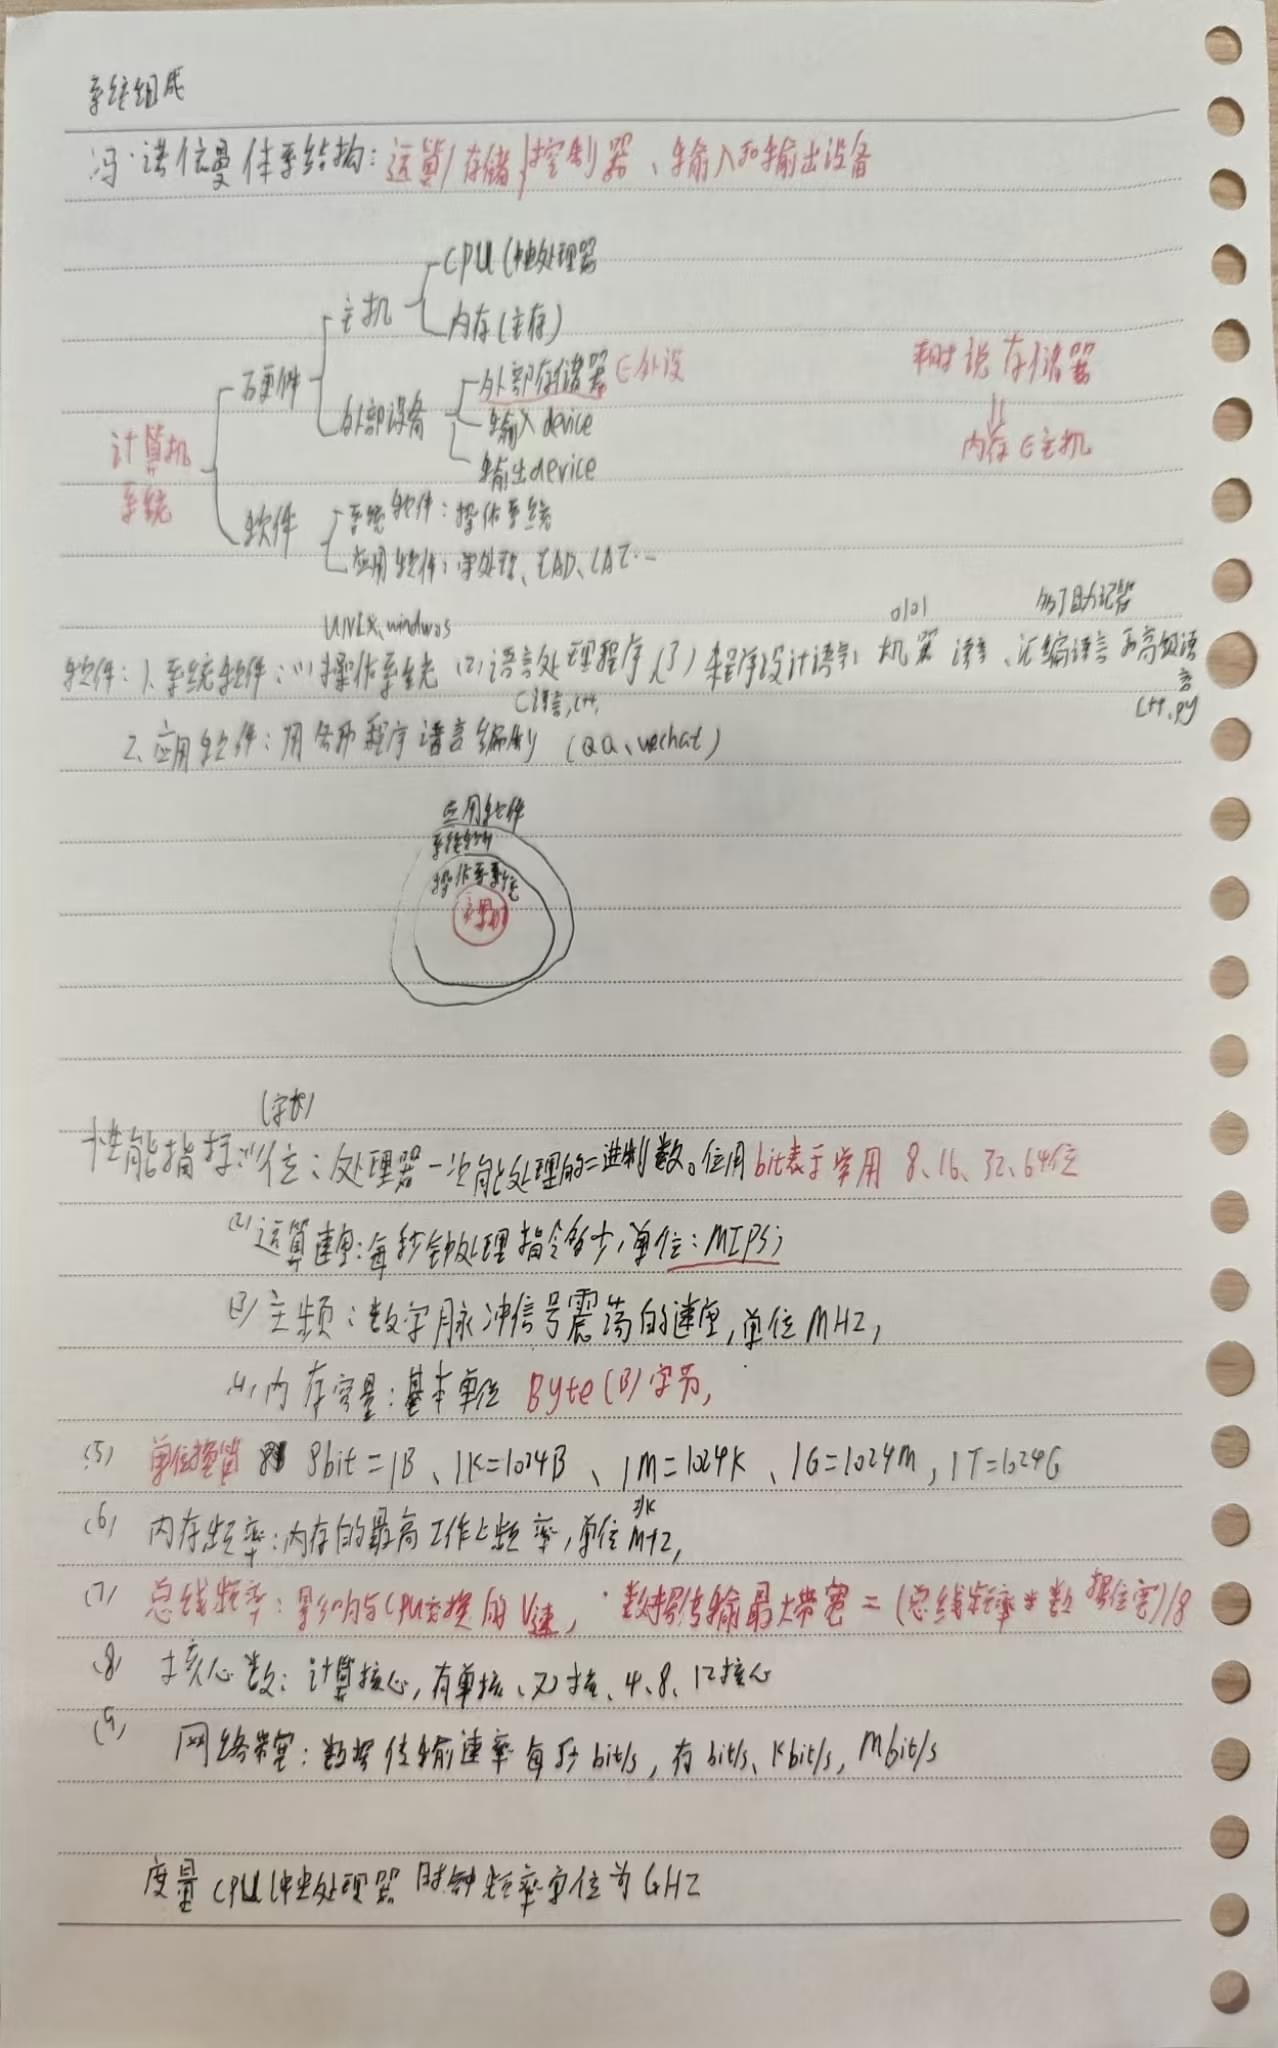 系统组成
冯·诺依曼体系结构：运算/存储/控制器、输入和输出设备
CPU(中央处理器
主机
内存(主存)
硬件
外部存储器∈外设
平时说存储器
外部设备
输入device
||
内存∈主机
计算机
系统
输出device
软件
系统软件：操作系统
应用软件：字处理、CAD、CAI…
UNIX、windwos
0101
助记符
软件：1、系统软件：(1)操作系统 (2)语言处理程序 (3)程序设计语言：机器语言、汇编语言和高级语言
C语言,C++,
C++、py
2、应用软件：用各种程序语言编制 (QQ、wechat)
应用软件
系统软件
操作系统
(字长)
性能指标：(1)位：处理器一次能处理的二进制数。位用bit表示 常用 8、16、32、64位
(2)运算速度：每秒钟处理指令多少，单位：MIPS；
(3)主频：数字脉冲信号震荡的速度，单位MHZ，
(4)内存容量：基本单位 Byte(B)字节，
(5) 单位换算 8bit=1B、1K=1024B、1M=1024K、1G=1024M，1T=1024G
(6) 内存频率：内存的最高工作频率，单位MHZ，
(7) 总线频率：影响与CPU交换的V速，数据传输最大带宽=(总线频率*数据位宽)/8
(8) 核心数：计算核心，有单核、双核、4、8、12核心
(9) 网络带宽：数据传输速率每秒bit/s，有bit/s、Kbit/s，Mbit/s
度量CPU(中央处理器 时钟频率单位为GHZ